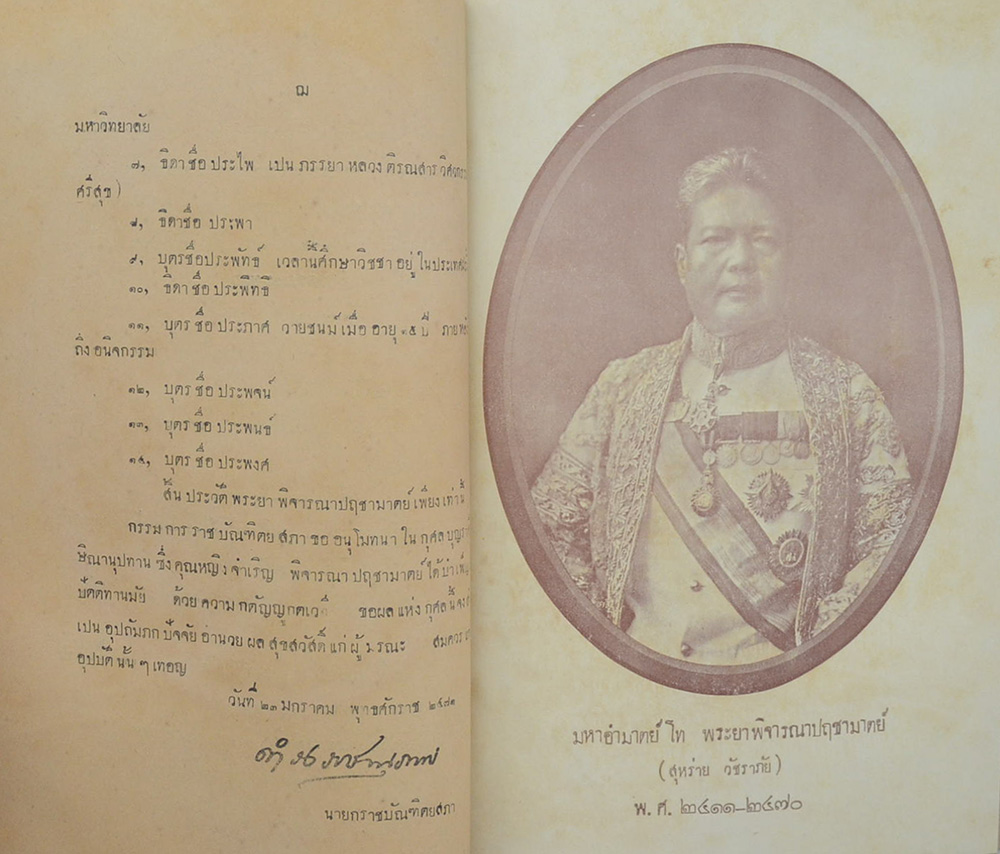 ฌ
มหาวิทยาลัย
๗, ธิดา ชื่อ ประไพ เปน ภรรยา หลวง ติรณสาร
ศรีสุข)
๘, ธิดาชื่อ ประพา
๙, บุตร์ชื่อประพัทธ์ เวลานี้ศึกษาวิชชา อยู่ ในประเทศ
๑๐, ธิดา ชื่อ ประพีทธิ์
๑๑, บุตร ชื่อ ประภาศ วายชนม์ เมื่อ อายุ ๑๕ ปี
ถึง อนิจกรรม
๑๒, บุตร ชื่อ ประพจน์
๑๓, บุตร ชื่อ ประพนธ์
๑๔, บุตร ชื่อ ประพงศ์
สิ้น ประวัติ พระยา พิจารณาปฤชามาตย์ เพียง เท่านี้
กรรม การ ราช บัณฑิตย สภา ขอ อนุโมทนา ใน กุศล
ษิณานุปทาน ซึ่ง คุณหญิง จำเริญ พิจารณา ปฤชามาตย์ ได้
ปัตติทานมัย ด้วย ความ กตัญญู ขอผล แห่ง กุศล นี้
เปน อุปถัมภก ปัจจัย อำนวย ผล สุขสวัสดิ์ แก่ ผู้ มรณะ สมควร
อุปบัติ นั้น ๆ เทอญ
วันที่ ๒๓ มกราคม พุทธศักราช
ดำรงราชานุภาพ
นายกราชบัณฑิตยสภา
มหาอำมาตย์ โท พระยาพิจารณาปฤชามาตย์
(สุหร่าย วัชราภัย)
พ. ศ. ๒๔๑๑-๒๔๗๐